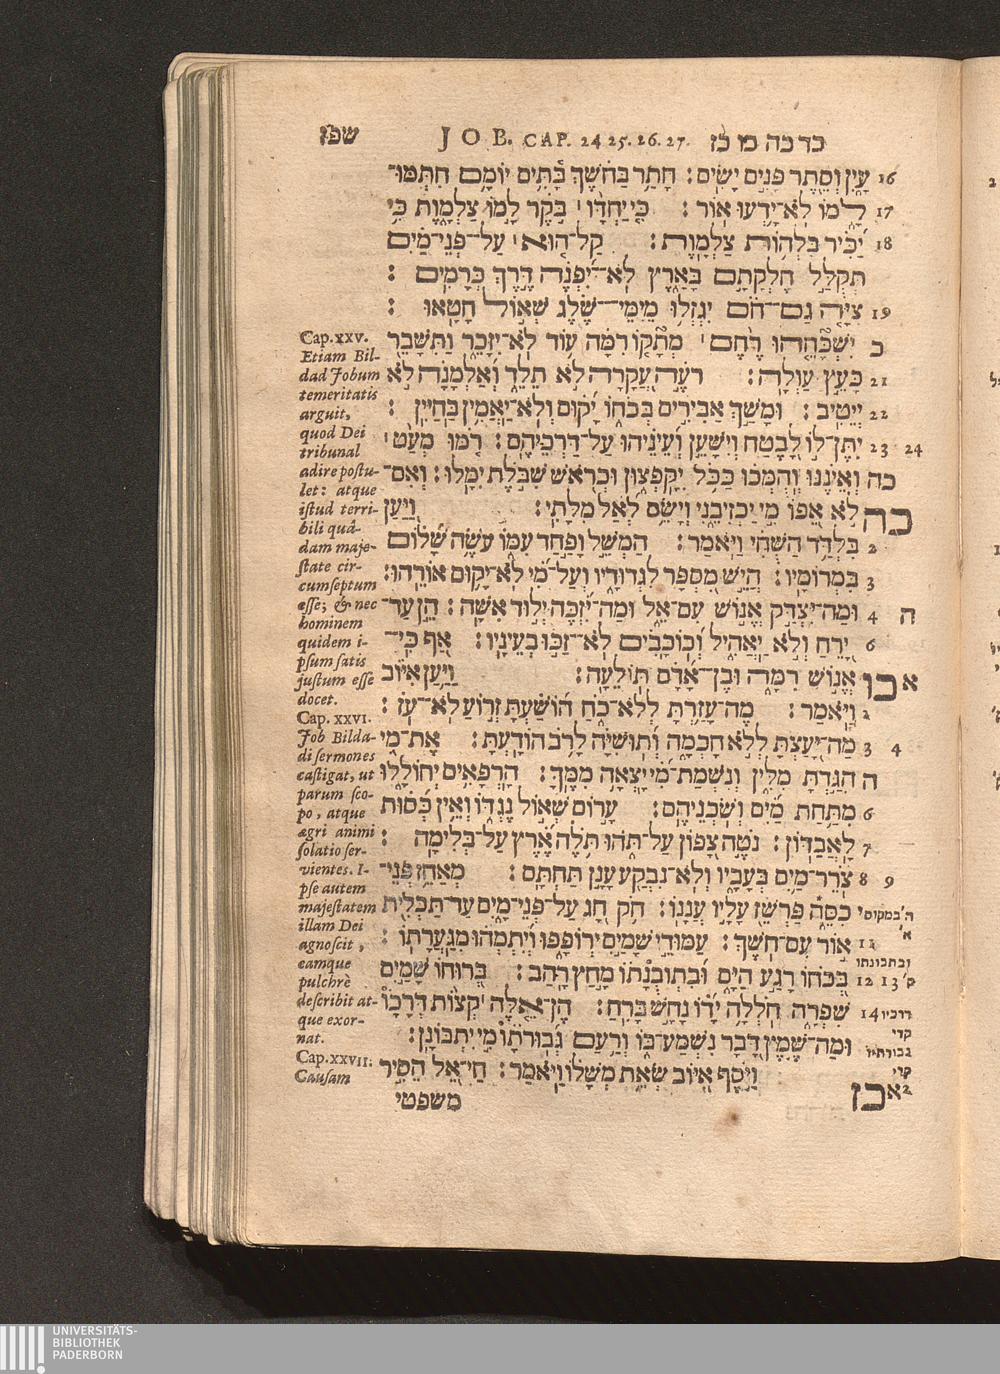 שפז JOB. CAP. 24 25. 26. 27. כד כה כו כז
עָיִן וְסֵתֶר פָּנִים יָשִׂים׃ חָתַר בַּחֹשֶׁךְ בָּתִּים יוֹמָם חִתְּמוּ־ 16
לָמוֹ לֹא־יָדְעוּ אוֹר׃ כִּי יַחְדָּו ׀ בֹּקֶר לָמוֹ צַלְמָוֶת כִּי 17
יַכִּיר בַּלְהוֹת צַלְמָוֶת׃ קַל־הוּא ׀ עַל־פְּנֵי־מַיִם 18
תְּקֻלַּל חֶלְקָתָם בָּאָרֶץ לֹא־יִפְנֶה דֶּרֶךְ כְּרָמִים׃
צִיָּה גַם־חֹם יִגְזְלוּ מֵימֵי־שֶׁלֶג שְׁאוֹל חָטָאוּ׃ 19
יִשְׁכָּחֵהוּ רֶחֶם ׀ מְתָקוֹ רִמָּה עוֹד לֹא־יִזָּכֵר וַתִּשָּׁבֵר כ
כָּעֵץ עַוְלָה׃ רֹעֶה עֲקָרָה לֹא תֵלֵד וְאַלְמָנָה לֹא 21
יְיֵטִיב׃ וּמָשַׁךְ אַבִּירִים בְּכֹחוֹ יָקוּם וְלֹא־יַאֲמִין בַּחַיִּין׃ 22
יִתֶּן־לוֹ לָבֶטַח וְיִשָּׁעֵן וְעֵינֵיהוּ עַל־דַּרְכֵיהֶם׃ רוֹמּוּ מְעַט ׀ 23 24
וְאֵינֶנּוּ וְהֻמְּכוּ כַּכֹּל יִקָּפְצוּן וּכְרֹאשׁ שִׁבֹּלֶת יִמָּלוּ׃ וְאִם־ כה
לֹא אֵפוֹ מִי יַכְזִיבֵנִי וְיָשֵׂם לְאַל מִלָּתִי׃ וַיַּעַן כה
בִּלְדַּד הַשֻּׁחִי וַיֹּאמַר׃ הַמְשֵׁל וָפַחַד עִמּוֹ עֹשֶׂה שָׁלוֹם 2
בִּמְרוֹמָיו׃ הֲיֵשׁ מִסְפָּר לִגְדוּדָיו וְעַל־מִי לֹא־יָקוּם אוֹרֵהוּ׃ 3
וּמַה־יִּצְדַּק אֱנוֹשׁ עִם־אֵל וּמַה־יִּזְכֶּה יְלוּד אִשָּׁה׃ הֵן עַד־ 4 ה
יָרֵחַ וְלֹא יַאֲהִיל וְכוֹכָבִים לֹא־זַכּוּ בְעֵינָיו׃ אַף כִּי־ 6
אֱנוֹשׁ רִמָּה וּבֶן־אָדָם תּוֹלֵעָה׃ וַיַּעַן אִיּוֹב כו א
וַיֹּאמַר׃ מֶה־עָזַרְתָּ לְלֹא־כֹחַ הוֹשַׁעְתָּ זְרוֹעַ לֹא־עֹז׃ 2
מַה־יָּעַצְתָּ לְלֹא חָכְמָה וְתוּשִׁיָּה לָרֹב הוֹדָעְתָּ׃ אֶת־מִי 3 4
הִגַּדְתָּ מִלִּין וְנִשְׁמַת־מִי יָצְאָה מִמֶּךָּ׃ הָרְפָאִים יְחוֹלָלוּ ה
מִתַּחַת מַיִם וְשֹׁכְנֵיהֶם׃ עָרוֹם שְׁאוֹל נֶגְדּוֹ וְאֵין כְּסוּת 6
לָאֲבַדּוֹן׃ נֹטֶה צָפוֹן עַל־תֹּהוּ תֹּלֶה אֶרֶץ עַל־בְּלִימָה׃ 7
צֹרֵר־מַיִם בְּעָבָיו וְלֹא־נִבְקַע עָנָן תַּחְתָּם׃ מְאַחֵז פְּנֵי־ 8 9
כִסֵּה פַּרְשֵׁז עָלָיו עֲנָנוֹ׃ חֹק חָג עַל־פְּנֵי־מָיִם עַד־תַּכְלִית י
אוֹר עִם־חֹשֶׁךְ׃ עַמּוּדֵי שָׁמַיִם יְרוֹפָפוּ וְיִתְמְהוּ מִגַּעֲרָתוֹ׃ 11
בְּכֹחוֹ רָגַע הַיָּם וּבִתְובֻנָתוֹ מָחַץ רָהַב׃ בְּרוּחוֹ שָׁמַיִם 12 13
שִׁפְרָה חֹלֲלָה יָדוֹ נָחָשׁ בָּרִחַ׃ הֶן־אֵלֶּה ׀ קְצוֹת דְּרָכָו 14
וּמַה־שֵּׁמֶץ דָּבָר נִשְׁמַע־בּוֹ וְרַעַם גְּבוּרֹתָו מִי יִתְבּוֹנָן׃
וַיֹּסֶף אִיּוֹב שְׂאֵת מְשָׁלוֹ וַיֹּאמַר׃ חַי־אֵל הֵסִיר כז א 2
משפטי
Cap. xxv.
Etiam Bil-
dad Jobum
temeritatis
arguit,
quod Dei
tribunal
adire postu-
let: atque
istud terri-
bili quâ-
dam maje-
state cir-
cumseptum
esse; & nec
hominem
quidem i-
psum satis
justum esse
docet.
Cap. xxvi.
Job Bilda-
di sermones
castigat, ut
parum sco-
po, atque
ægri animi
solatio ser-
vientes. I-
pse autem
majestatem
illam Dei
agnoscit,
eamque
pulchrè
describit at-
que exor-
nat.
Cap. xxvii.
Causam
ה׳ במקום
א׳
ובתבונתו
דרכיו
קרי
גבורתיו
קרי
UNIVERSITÄTS-
BIBLIOTHEK
PADERBORN